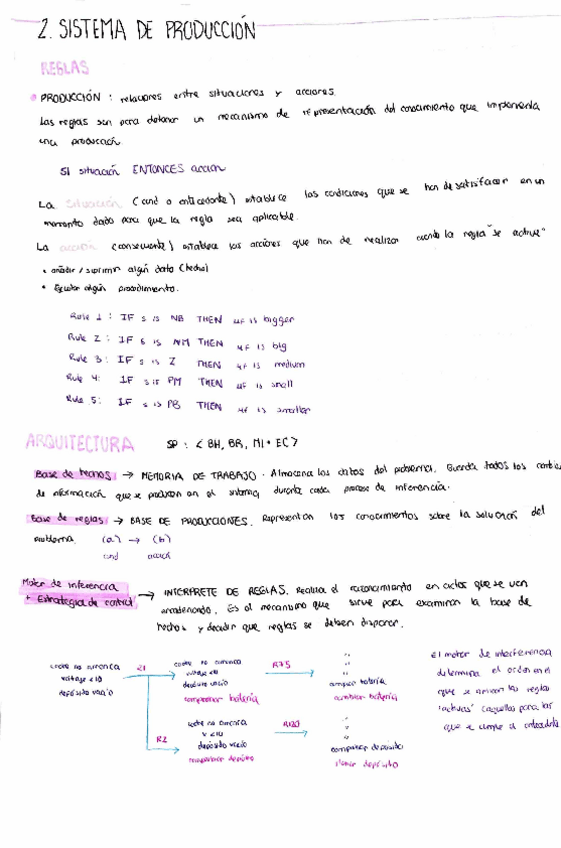 2. SISTEMA DE PRODUCCIÓN
REGLAS
PRODUCCIÓN : relaciones entre situaciones y acciones.
Las reglas son para detonar un mecanismo de representación del conocimiento que implementa
una producción
SI situación ENTONCES acción
La situación (cond o antecedente) establece las condiciones que se han de satisfacer en un
momento dado para que la regla sea aplicable.
La acción (consecuente) establece las acciones que han de realizar cuando la regla "se active"
• añadir / suprimir algún dato (hecho)
• Ejecutar algún procedimiento.
Rule 1 : IF s is NB THEN uf is bigger
Rule 2 : IF s is NM THEN uf is big
Rule 3 : IF s is Z THEN uf is medium
Rule 4: IF s is PM THEN uf is small
Rule 5: IF s is PB THEN uf is smaller
ARQUITECTURA SP : < BH, BR, MI + EC >
Base de hechos → MEMORIA DE TRABAJO. Almacena los datos del problema. Guarda todos los
de información que se producen en el sistema durante cada proceso de inferencia.
Base de reglas → BASE DE PRODUCCIONES. Representan los conocimientos sobre la solución del
problema. (a) → (b)
cond acción
Motor de inferencia
+ Estrategia de control → INTERPRETE DE REGLAS. Realiza el razonamiento en ciclos que se van
encadenando. Es el mecanismo que sirve para examinar la base de
hechos y decidir que reglas se deben disparar.
coche no arranca
voltaje <10
depósito vacío
R1
coche no arranca
voltaje <10
depósito vacío
comprobar batería
R75
"
"
comprobar batería
cambiar batería
R2
coche no arranca
v <10
depósito vacío
comprobar depósito
R120
"
"
comprobar depósito
llenar depósito
El motor de interferencia
determina el orden en el
que se activan las reglas
"activas" (aquellas para las
que se cumple el